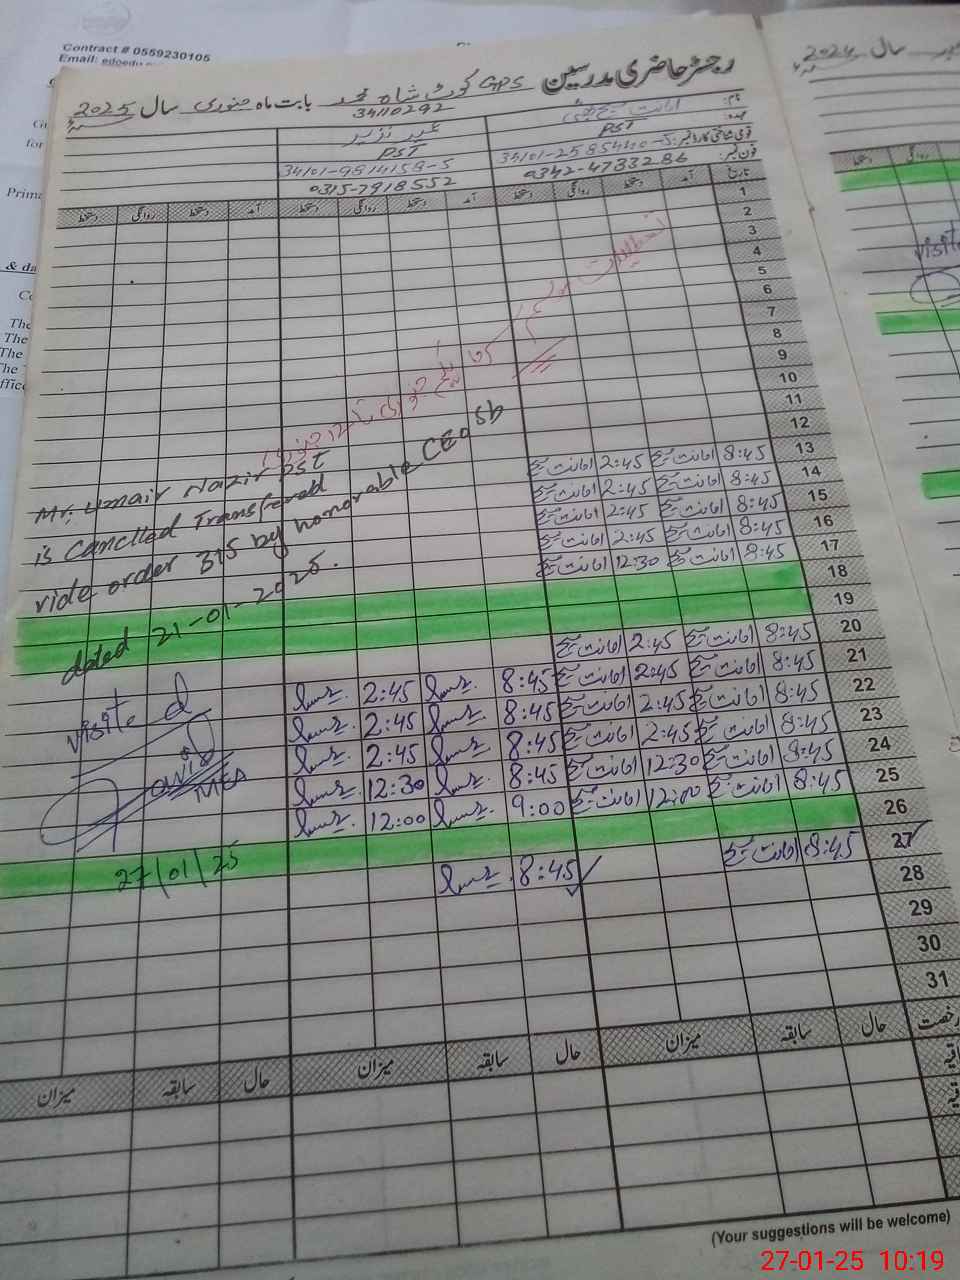 Contract # 0559230105
Email:
رجسٹر حاضری مدرسین GPS کوٹ شاہ محمد بابت ماہ جنوری سال 2025
34110292
سال 2024
نام:
عہدہ: PST PST
قومی شناختی کارڈ نمبر: 34101-2585440-5 34101-9814158-5
فون نمبر: 0342-4733286 0315-7918552
تاریخ آمد دستخط روانگی دستخط آمد دستخط روانگی دستخط آمد دستخط روانگی دستخط
1
2
3
4
5
6
7
8
9
10
11
12
تعطیلات موسم سرما
Mr. Umair Nazir PST
is Cancelled Transferred
vide order 315 by honorable CEO Sb
dated 21-01-2025.
13 8:45 امانت مسیح 2:45 امانت مسیح
14 8:45 امانت مسیح 2:45 امانت مسیح
15 8:45 امانت مسیح 2:45 امانت مسیح
16 8:45 امانت مسیح 2:45 امانت مسیح
17 8:45 امانت مسیح 12:30 امانت مسیح
18
19
20 8:45 امانت مسیح 2:45 امانت مسیح
21 8:45 امانت مسیح 2:45 امانت مسیح 8:45 2:45
22 8:45 امانت مسیح 2:45 امانت مسیح 8:45 2:45
23 8:45 امانت مسیح 2:45 امانت مسیح 8:45 2:45
24 8:45 امانت مسیح 12:30 امانت مسیح 8:45 12:30
25 8:45 امانت مسیح 12:00 امانت مسیح 9:00 12:00
26
27 8:45 امانت مسیح 8:45
visited
MEA
27/01/25
28
29
30
31
رخصت حال سابقہ میزان حال سابقہ میزان حال سابقہ میزان
(Your suggestions will be welcome)
27-01-25 10:19